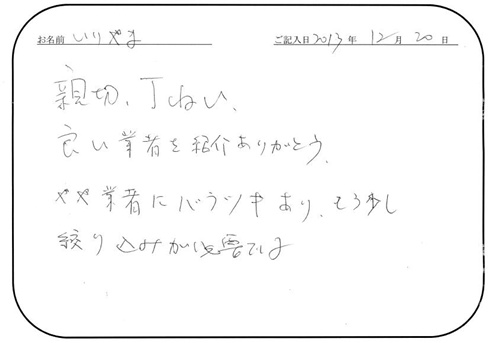 お名前 いりやま ご記入日 2013 年 12 月 20 日
親切、丁ねい、
良い業者を紹介ありがとう。
やや業者にバラツキあり、もう少し
絞り込みが必要では